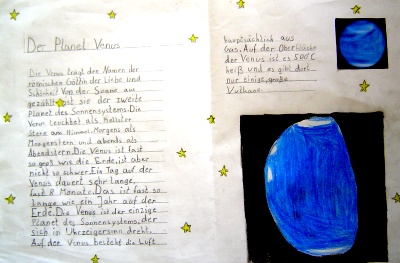 Der Planet Venus
Die Venus trägt den Namen der
römischen Göttin der Liebe und
Schönheit. Von der Sonne aus
gezählt ist sie der zweite
Planet des Sonnensystems. Die
Venus leuchtet als hellster
Stern am Himmel. Morgens als
Morgenstern und abends als
Abendstern. Die Venus ist fast
so groß wie die Erde, ist aber
nicht so schwer. Ein Tag auf der
Venus dauert sehr lange,
fast 8 Monate. Das ist fast so
lange wie ein Jahr auf der
Erde. Die Venus ist der einzige
Planet des Sonnensystems, der
sich im Uhrzeigersinn dreht.
Auf der Venus besteht die Luft
hauptsächlich aus
Gas. Auf der Oberfläche
der Venus ist es 500°C
heiß und es gibt dort
nur einige große
Vulkane.